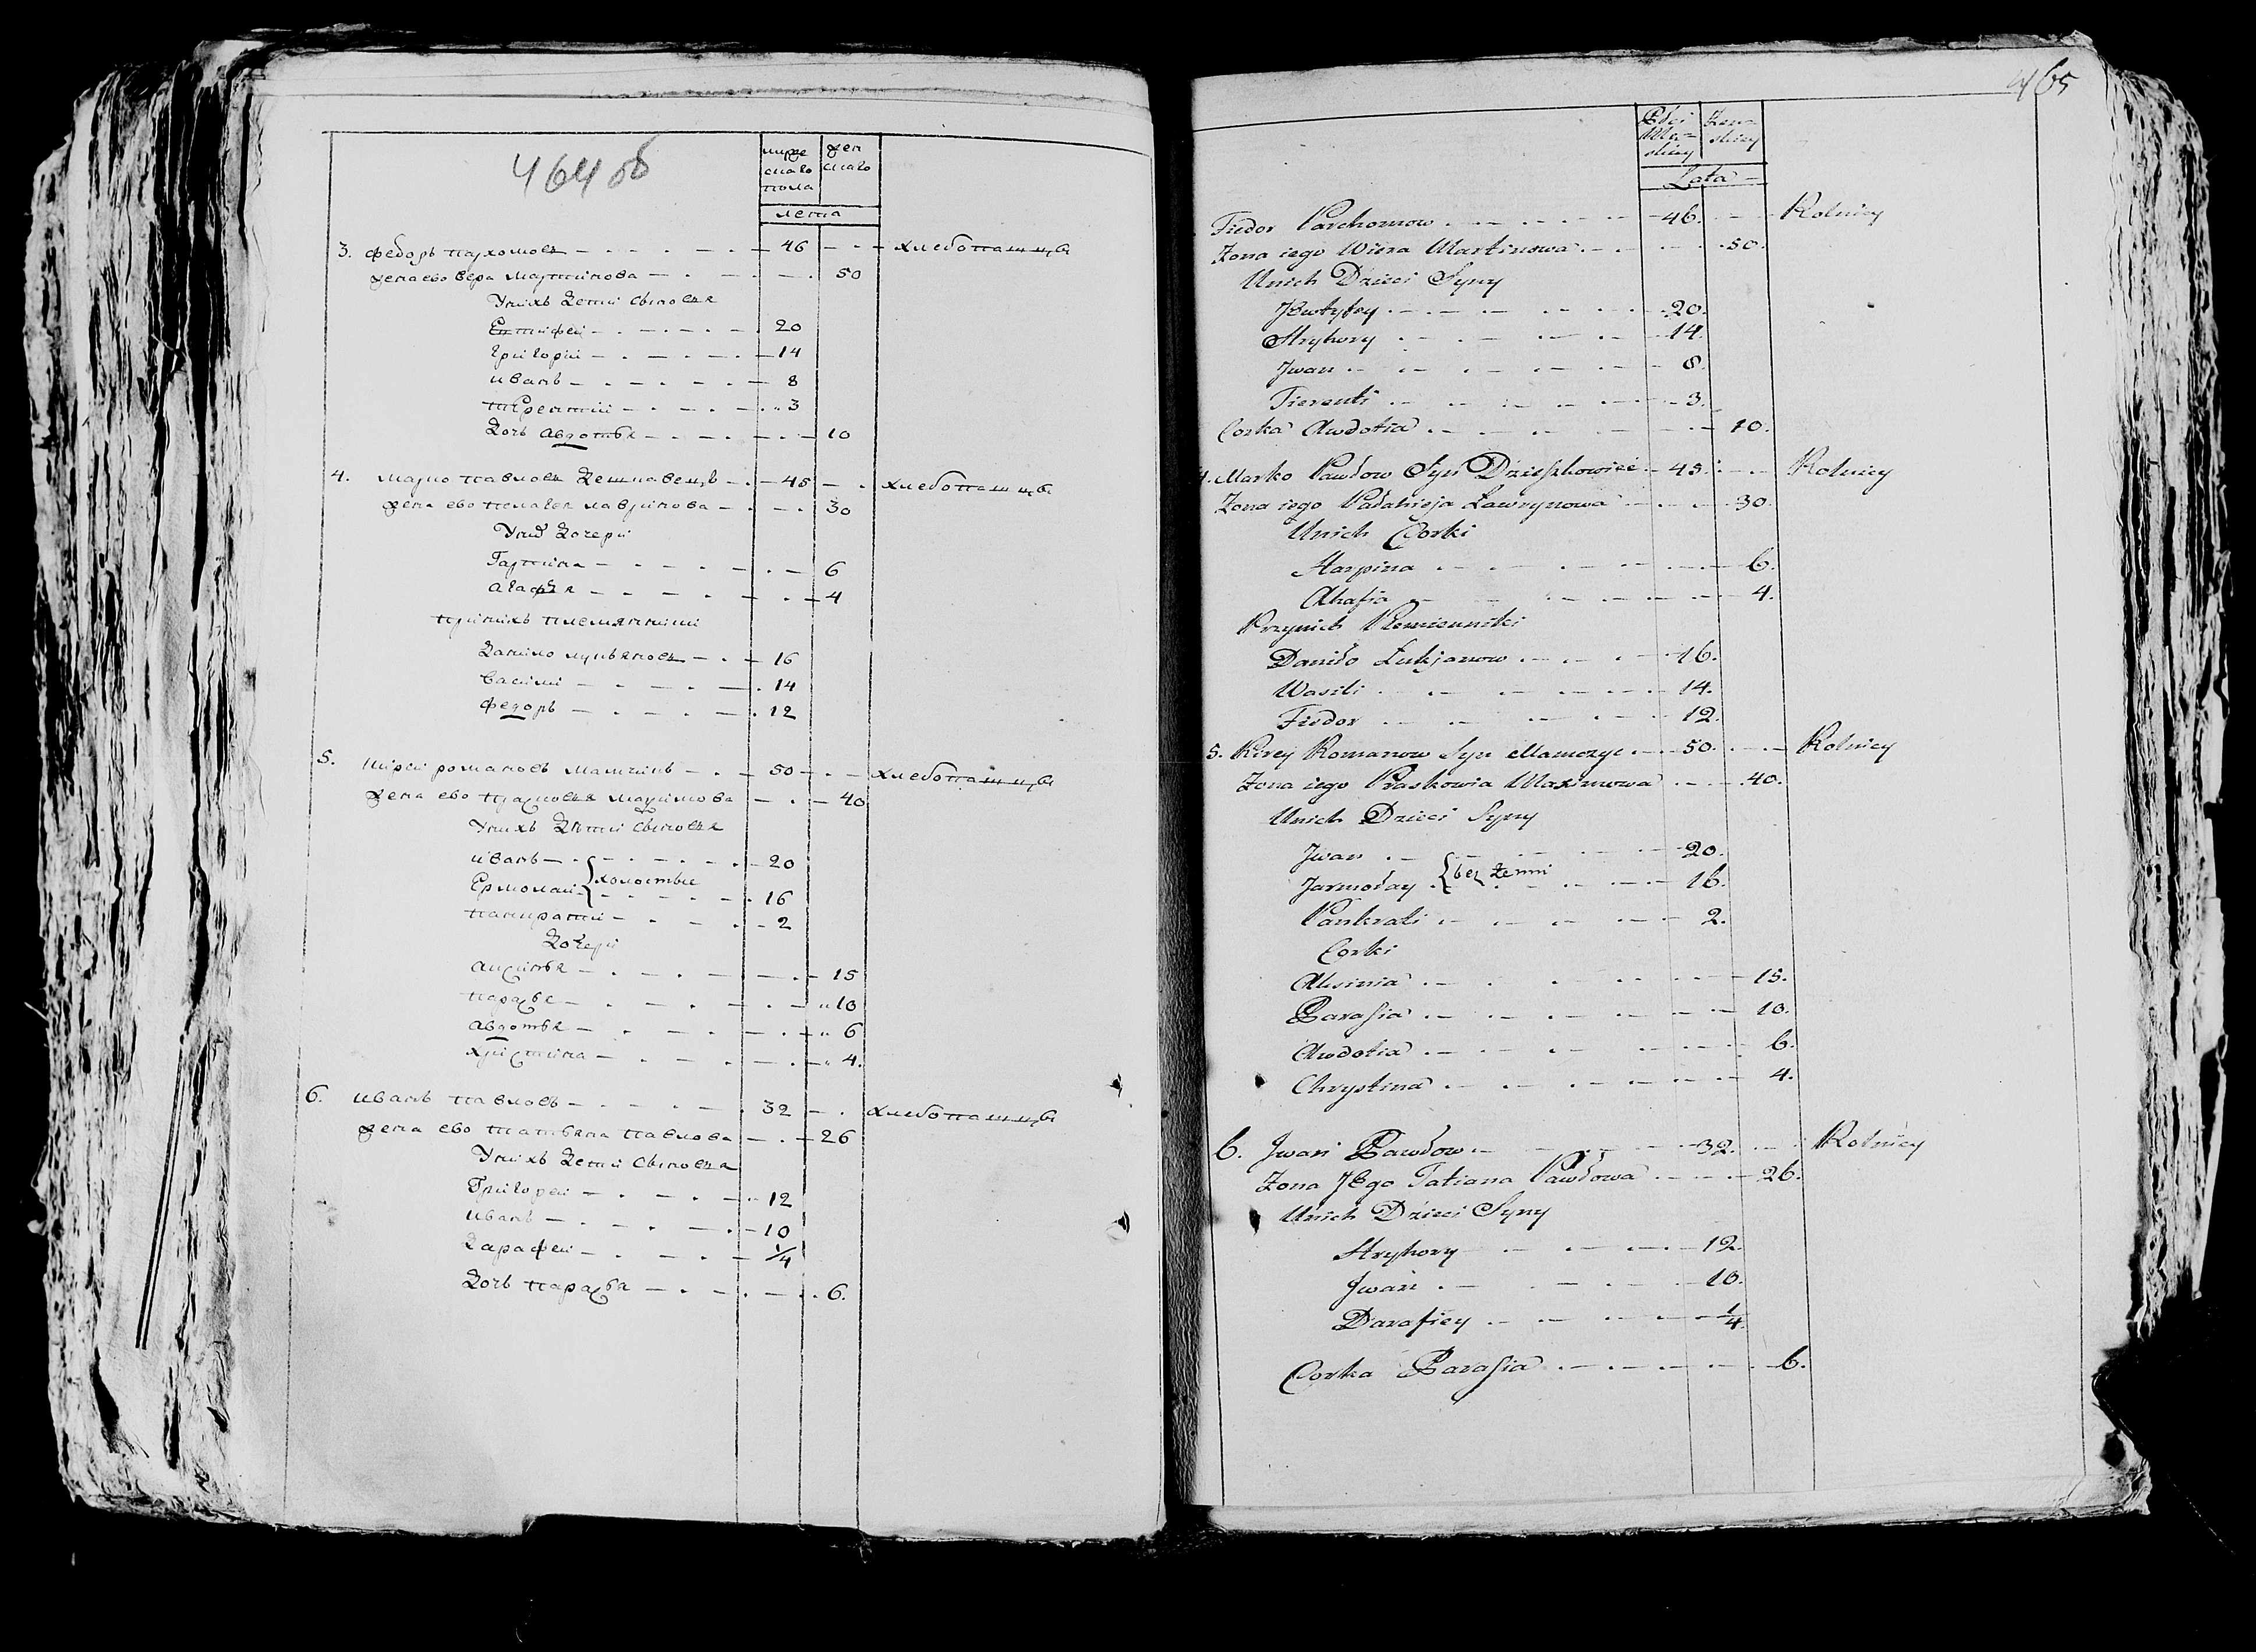 464 об
муже
скаго
пола
жен
скаго
лета
3. федоръ пархомовъ 46 хлебопашцы
жена ево вера мартинова 50
У нихъ дети сыновья
Евтифей 20
Григорий 14
иванъ 8
терентий 3
дочь авдотья 10
4. марко павловъ 45 хлебопашцы
жена ево пелагея лавринова 30
У них дочери
Гарпина 6
агафья 4
при нихъ племянники
данило лукьяновъ 16
василий 14
федоръ 12
5. кирей романовъ мамчицъ 50 хлебопашцы
жена ево прасковья максимова 40
У нихъ дети сыновья
иванъ 20
Ермолай 16
холостые
панкратий 2
дочери
аксинья 15
парасья 10
авдотья 6
христина 4.
6. иванъ павловъ 32 хлебопашцы
жена ево татьяна павлова 26
У нихъ дети сыновья
Григорей 12
иванъ 10
дарафей 1/4
дочь парасья 6.
465
Płci
Męz-
skiey
Zen-
skiey
Lata
Fiedor Parchomow 46. Rolnicy
Zona iego Wiera Martinowa 50.
Unich Dzieci Syny
Jewtyfey 20.
Hryhory 14.
Jwan 8.
Tierenti 3.
Corka Awdotia 10.
4. Marko Pawłow Syn 45. Rolnicy
Zona iego Pałahieja Ławrynowa 30.
Unich Corki
Harpina 6.
Ahafia 4.
Przynich Plemienniki
Daniło Łukjanow 16.
Wasili 14.
Fiedor 12.
5. Kirey Romanow Syn Mamczyc 50. Rolnicy
Zona iego Praskowia Maximowa 40.
Unich Dzieci Syny
Jwan 20.
Jarmołay 16.
bez Zenni
Pankrati 2.
Corki
Aksinia 15.
Parasia 10.
Awdotia 6.
Chrystina 4.
6. Jwan Pawłow 32. Rolnicy
Zona JEgo Tatiana Pawłowa 26.
Unich Dzieci Syny
Hryhory 12.
Jwan 10.
Darafiey 1/4.
Corka Parasia 6.